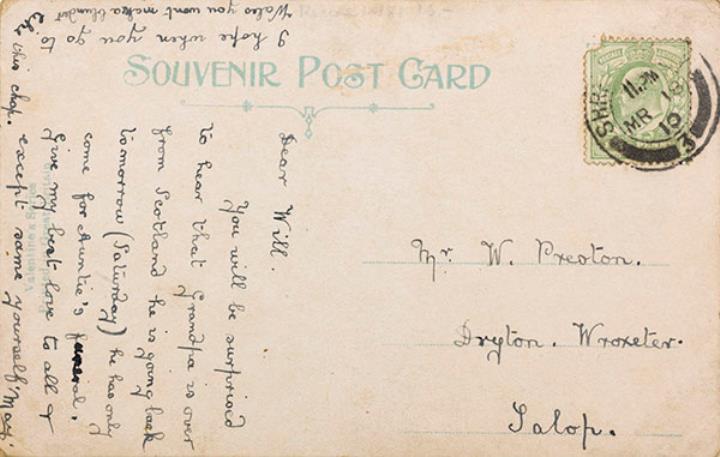 SOUVENIR POST CARD
Dear Will.
You will be surprised
to hear that Grandpa is over
from Scotland he is going back
tomorrow (Saturday) he has only
come for Auntie's funeral.
Give my best love to all &
except same yourself. May.
I hope when you go to
Wales you wont make a blunder
like this chap.
Valentine's Series
11. PM
MR 18
10
3
Mr. W. Preston.
Dryton. Wroxeter.
Salop.